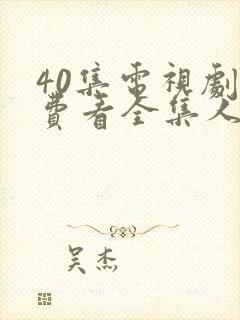 40集電視劇
費看全集人
吴杰